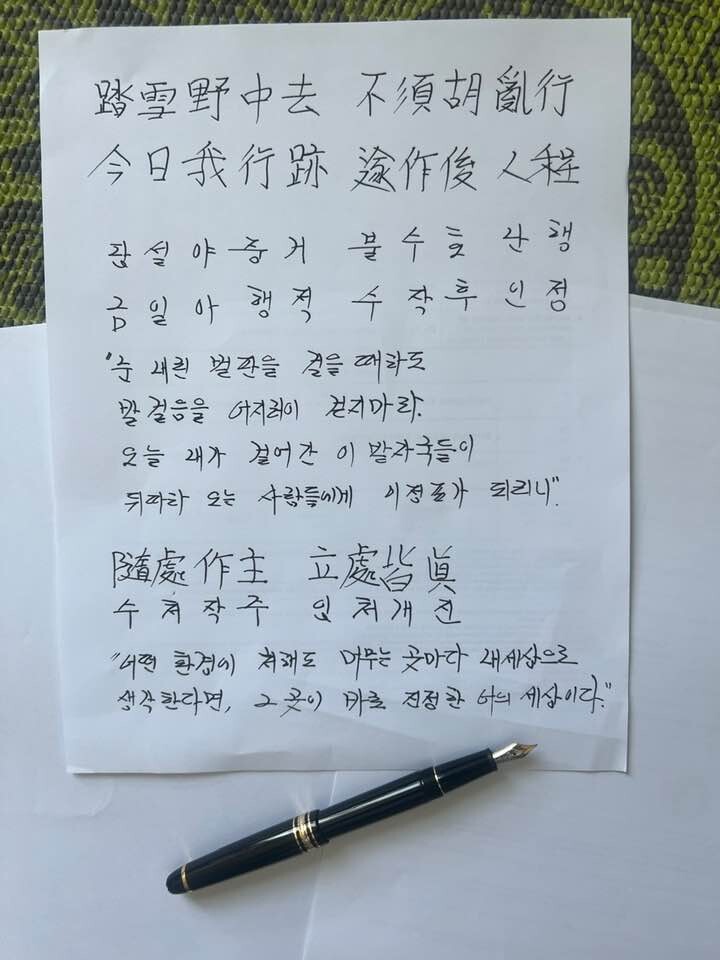 踏雪野中去 不須胡亂行
今日我行跡 遂作後人程
답설야중거 불수호란행
금일아행적 수작후인정
"눈 내린 벌판을 걸을 때라도
발걸음을 어지러이 걷지마라.
오늘 내가 걸어간 이 발자국들이
뒤따라 오는 사람들에게 이정표가 되리니".
隨處作主 立處皆眞
수처작주 입처개진
"어떤 환경에 처해도 머무는 곳마다 내세상으로
생각한다면, 그 곳이 바로 진정한 너의 세상이다."